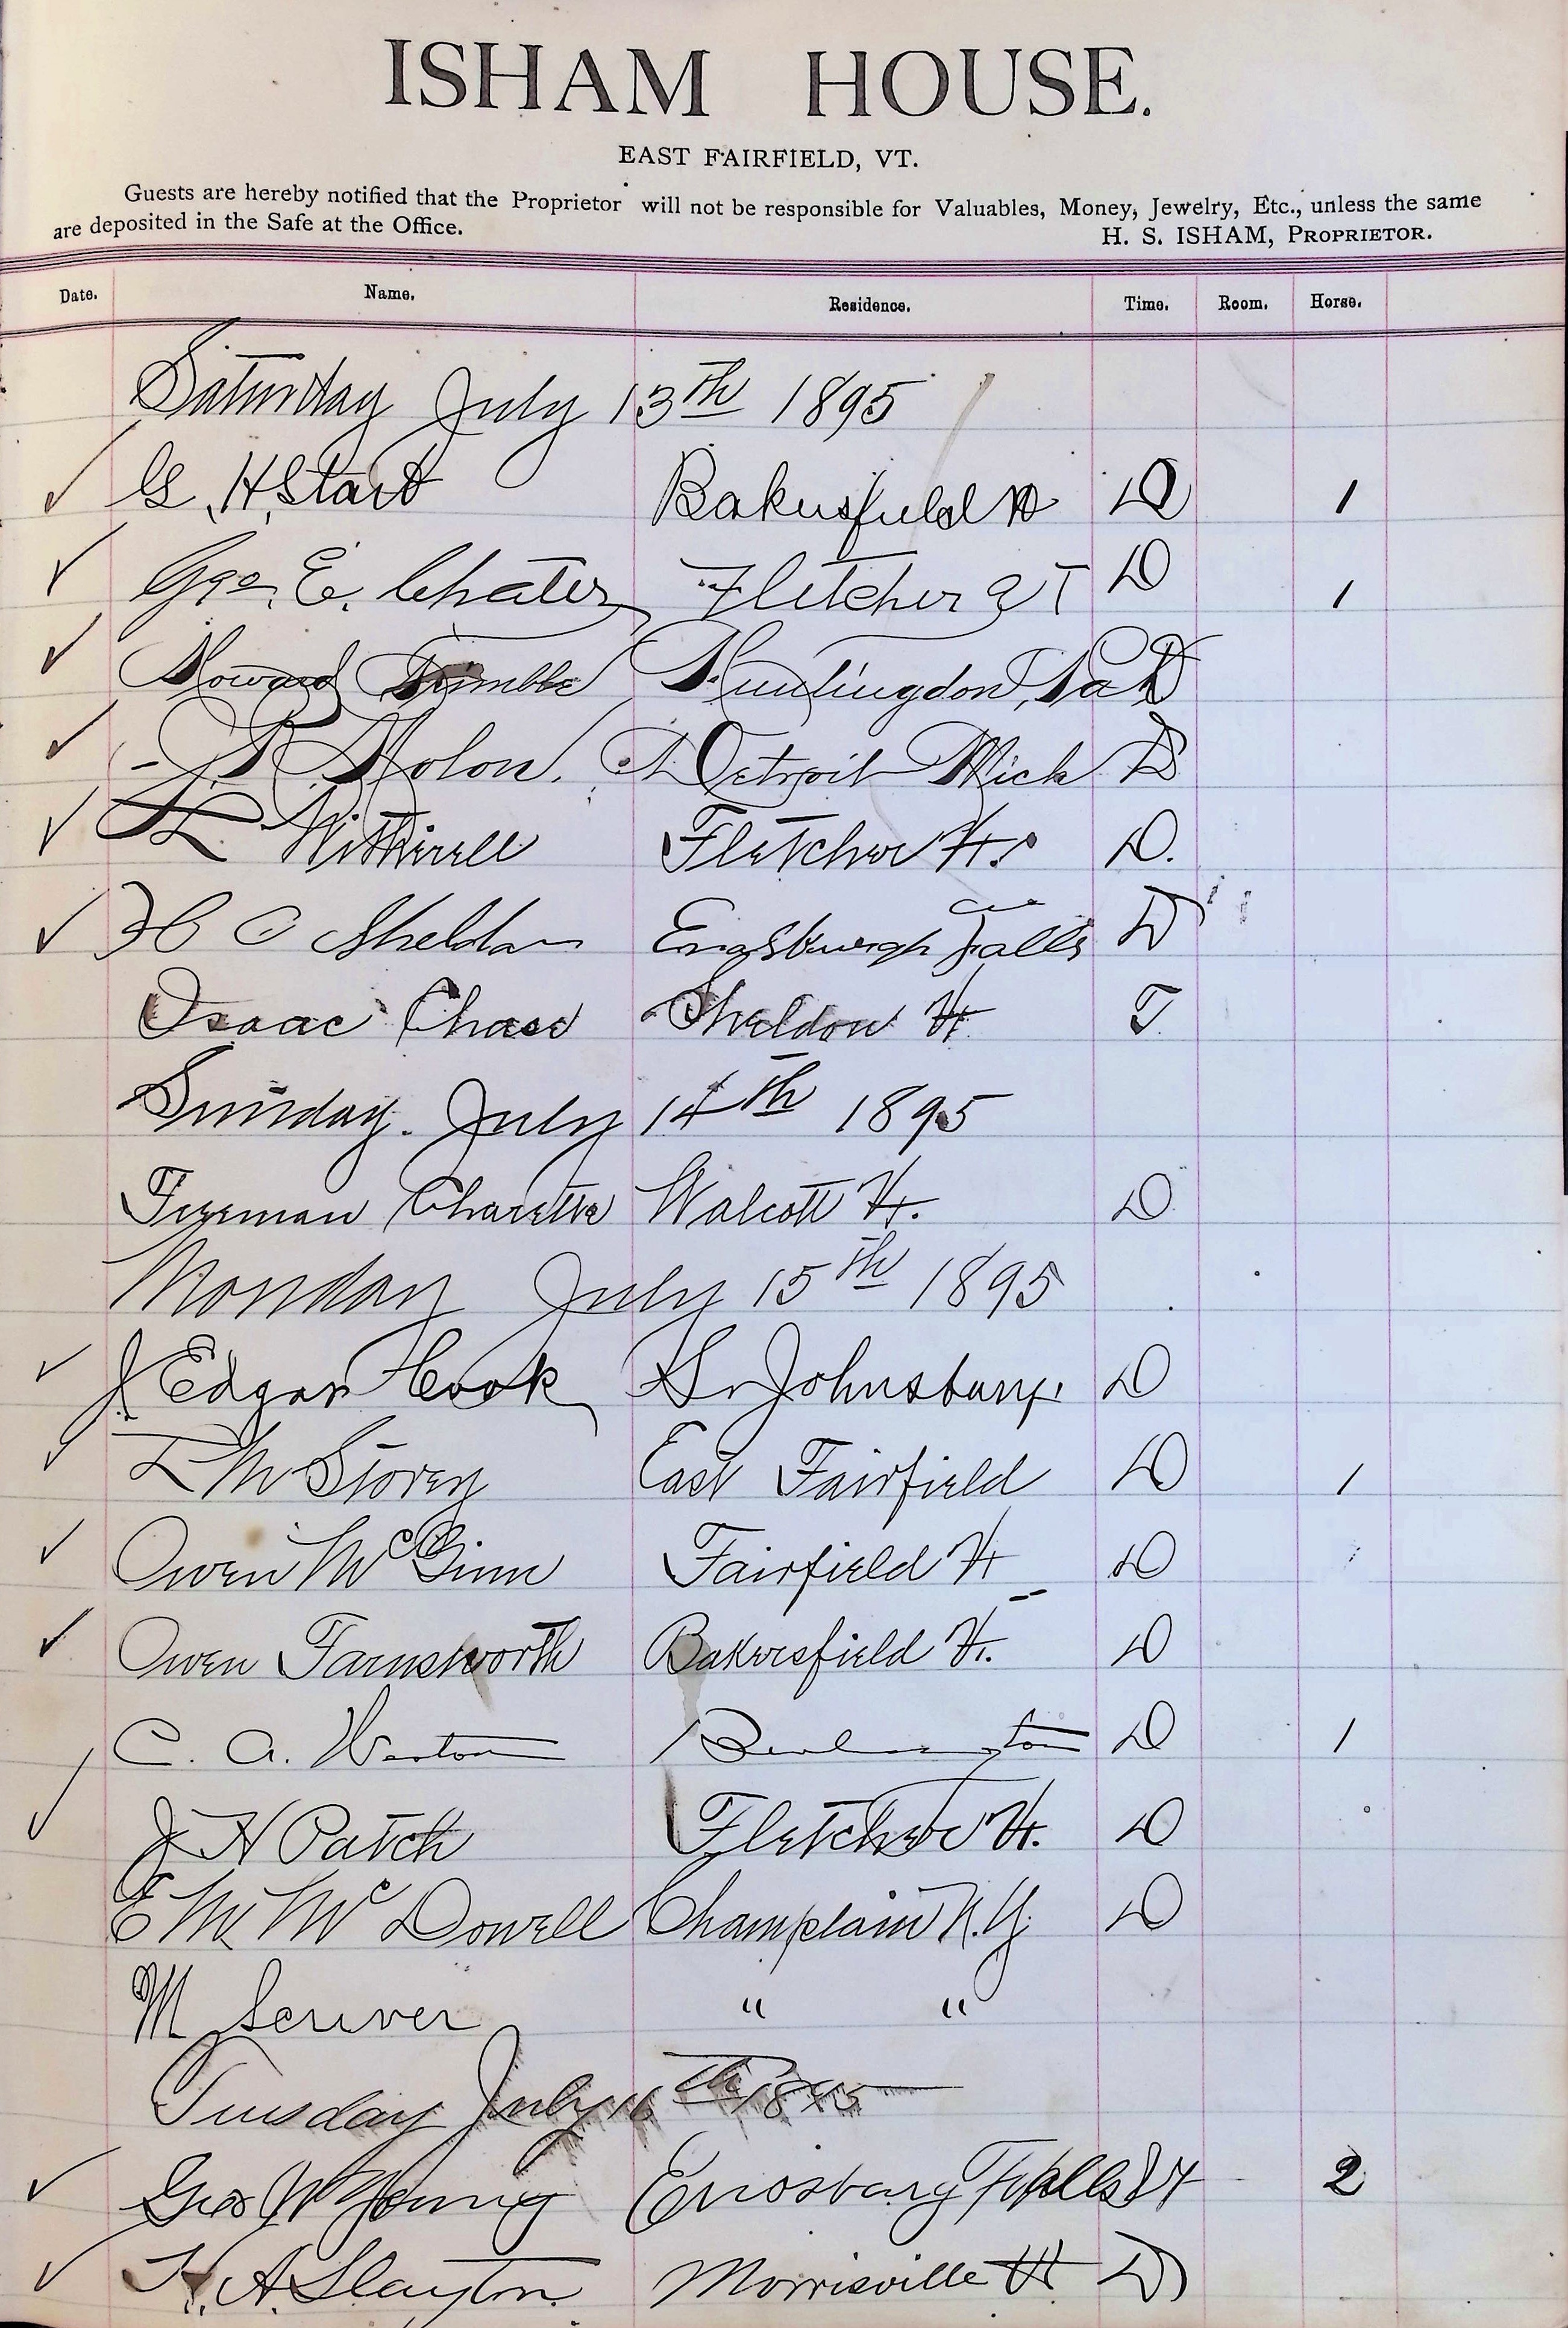 ISHAM HOUSE.
EAST FAIRFIELD, VT.
Guests are hereby notified that the Proprietor will not be responsible for Valuables, Money, Jewelry, Etc., unless the same
are deposited in the Safe at the Office.
H. S. ISHAM, PROPRIETOR.
Date. Name. Residence. Time. Room. Horse.
Saturday July 13th 1895
✓ G. H. Start Bakersfield Vt D 1
✓ Geo. E. Chates Fletcher VT D 1
✓ Howard Trimble Huntingdon, Pa D
✓ Holon. Detroit Mich D
✓ L Witherell Fletcher Vt. D.
✓ H C Sheldon Enosburgh Falls D
Isaac Chase Sheldon Vt. T.
Sunday. July 14th 1895
Freeman Charette Walcott Vt. D
Monday July 15th 1895
✓ J. Edgar Cook St Johnsbury. D
✓ L M Storey East Fairfield D 1
✓ Owen McGinn Fairfield Vt D
✓ Owen Farnsworth Bakersfield Vt. D
C. A. Weston Burlington D 1
✓ J H Patch Fletcher Vt. D
E M McDowell Champlain N.Y D
M Scriver " "
Tuesday July 16th 1895
✓ Geo W Young Enosburg Falls Vt 2
✓ H. A. Slayton. Morrisville Vt D